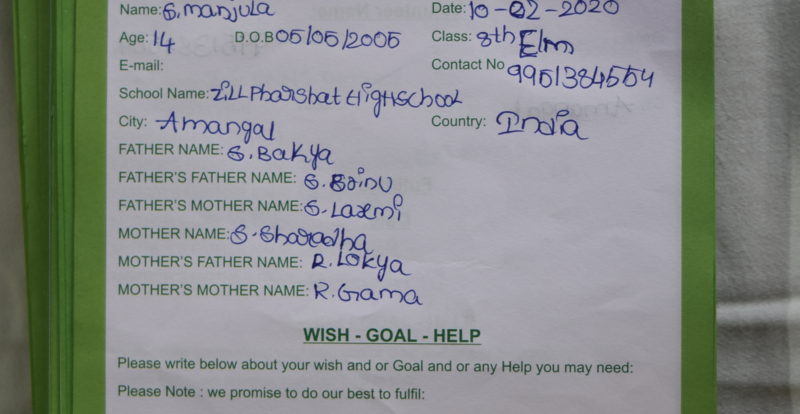 Name: S. Manjula Date: 10-02-2020
Age: 14 D.O.B 05/05/2005 Class: 8th E/m
E-mail: Contact No 9951384554
School Name: Zill Pharishat Highschool
City: Amangal Country: India
FATHER NAME: S. Bakya
FATHER'S FATHER NAME: S. Bojnu
FATHER'S MOTHER NAME: S. Laxmi
MOTHER NAME: S. Sharadha
MOTHER'S FATHER NAME: R. Lokya
MOTHER'S MOTHER NAME: R. Gama
WISH - GOAL - HELP
Please write below about your wish and or Goal and or any Help you may need:
Please Note : we promise to do our best to fulfil: